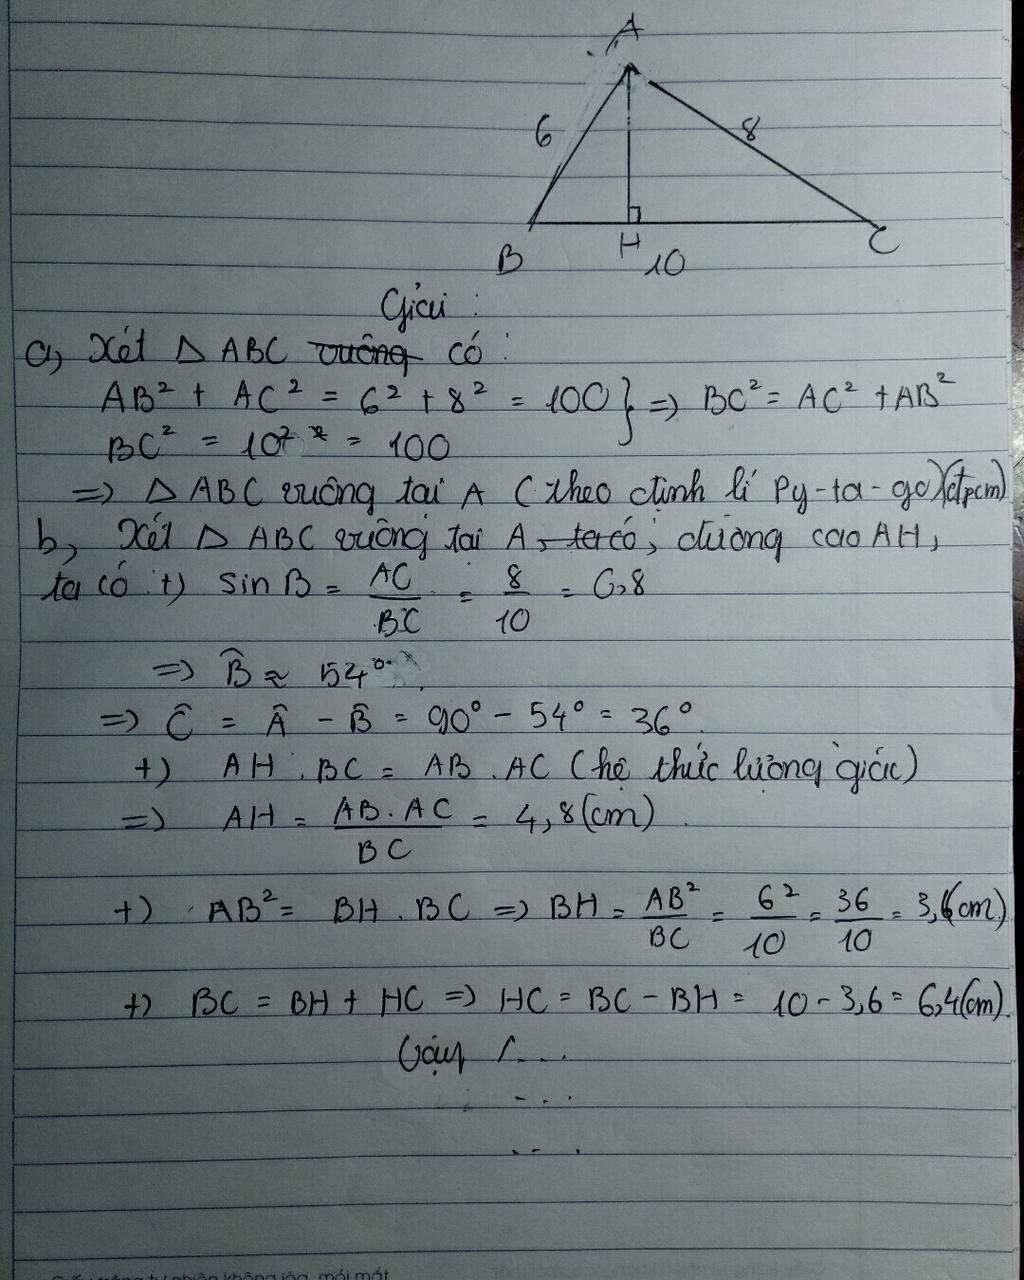 A
6
8
B
H
10
C
Giải :
a, Xét △ ABC vuông có :
AB² + AC² = 6² + 8² = 100 } => BC² = AC² + AB²
BC² = 10² = 100
=> △ ABC vuông tại A ( theo định lí Py-ta-go)(đpcm)
b, Xét △ ABC vuông tại A, ta có, đường cao AH,
ta có : +) sin B = AC/BC = 8/10 = 0,8
=> B̂ ≈ 54°
=> Ĉ = Â - B̂ = 90° - 54° = 36°.
+) AH . BC = AB . AC (hệ thức lượng giác)
=> AH = AB . AC / BC = 4,8 (cm) .
+) AB² = BH . BC => BH = AB²/BC = 6²/10 = 36/10 = 3,6 (cm)
+) BC = BH + HC => HC = BC - BH = 10 - 3,6 = 6,4 (cm)
Vậy ...
...
...